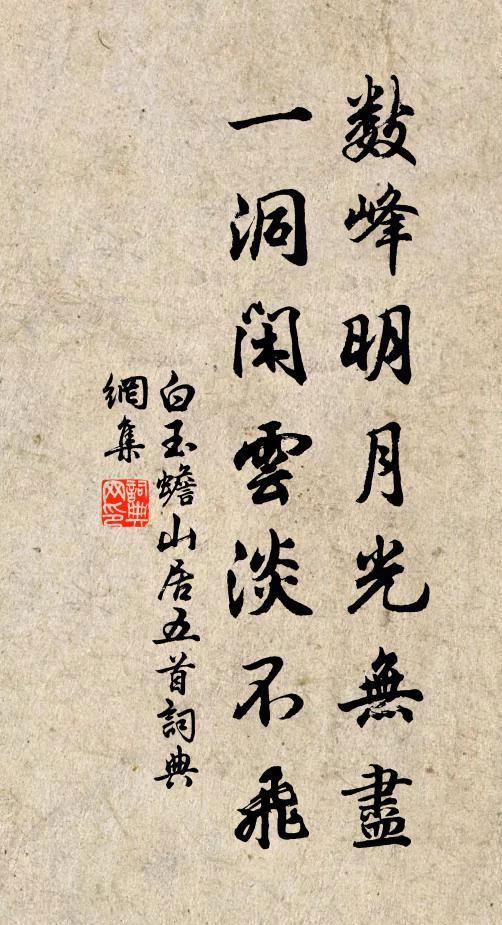 数峰明月光無盡
一洞閑雲淡不飛
白玉蟾山居五首詞典
網集
詞典
网印